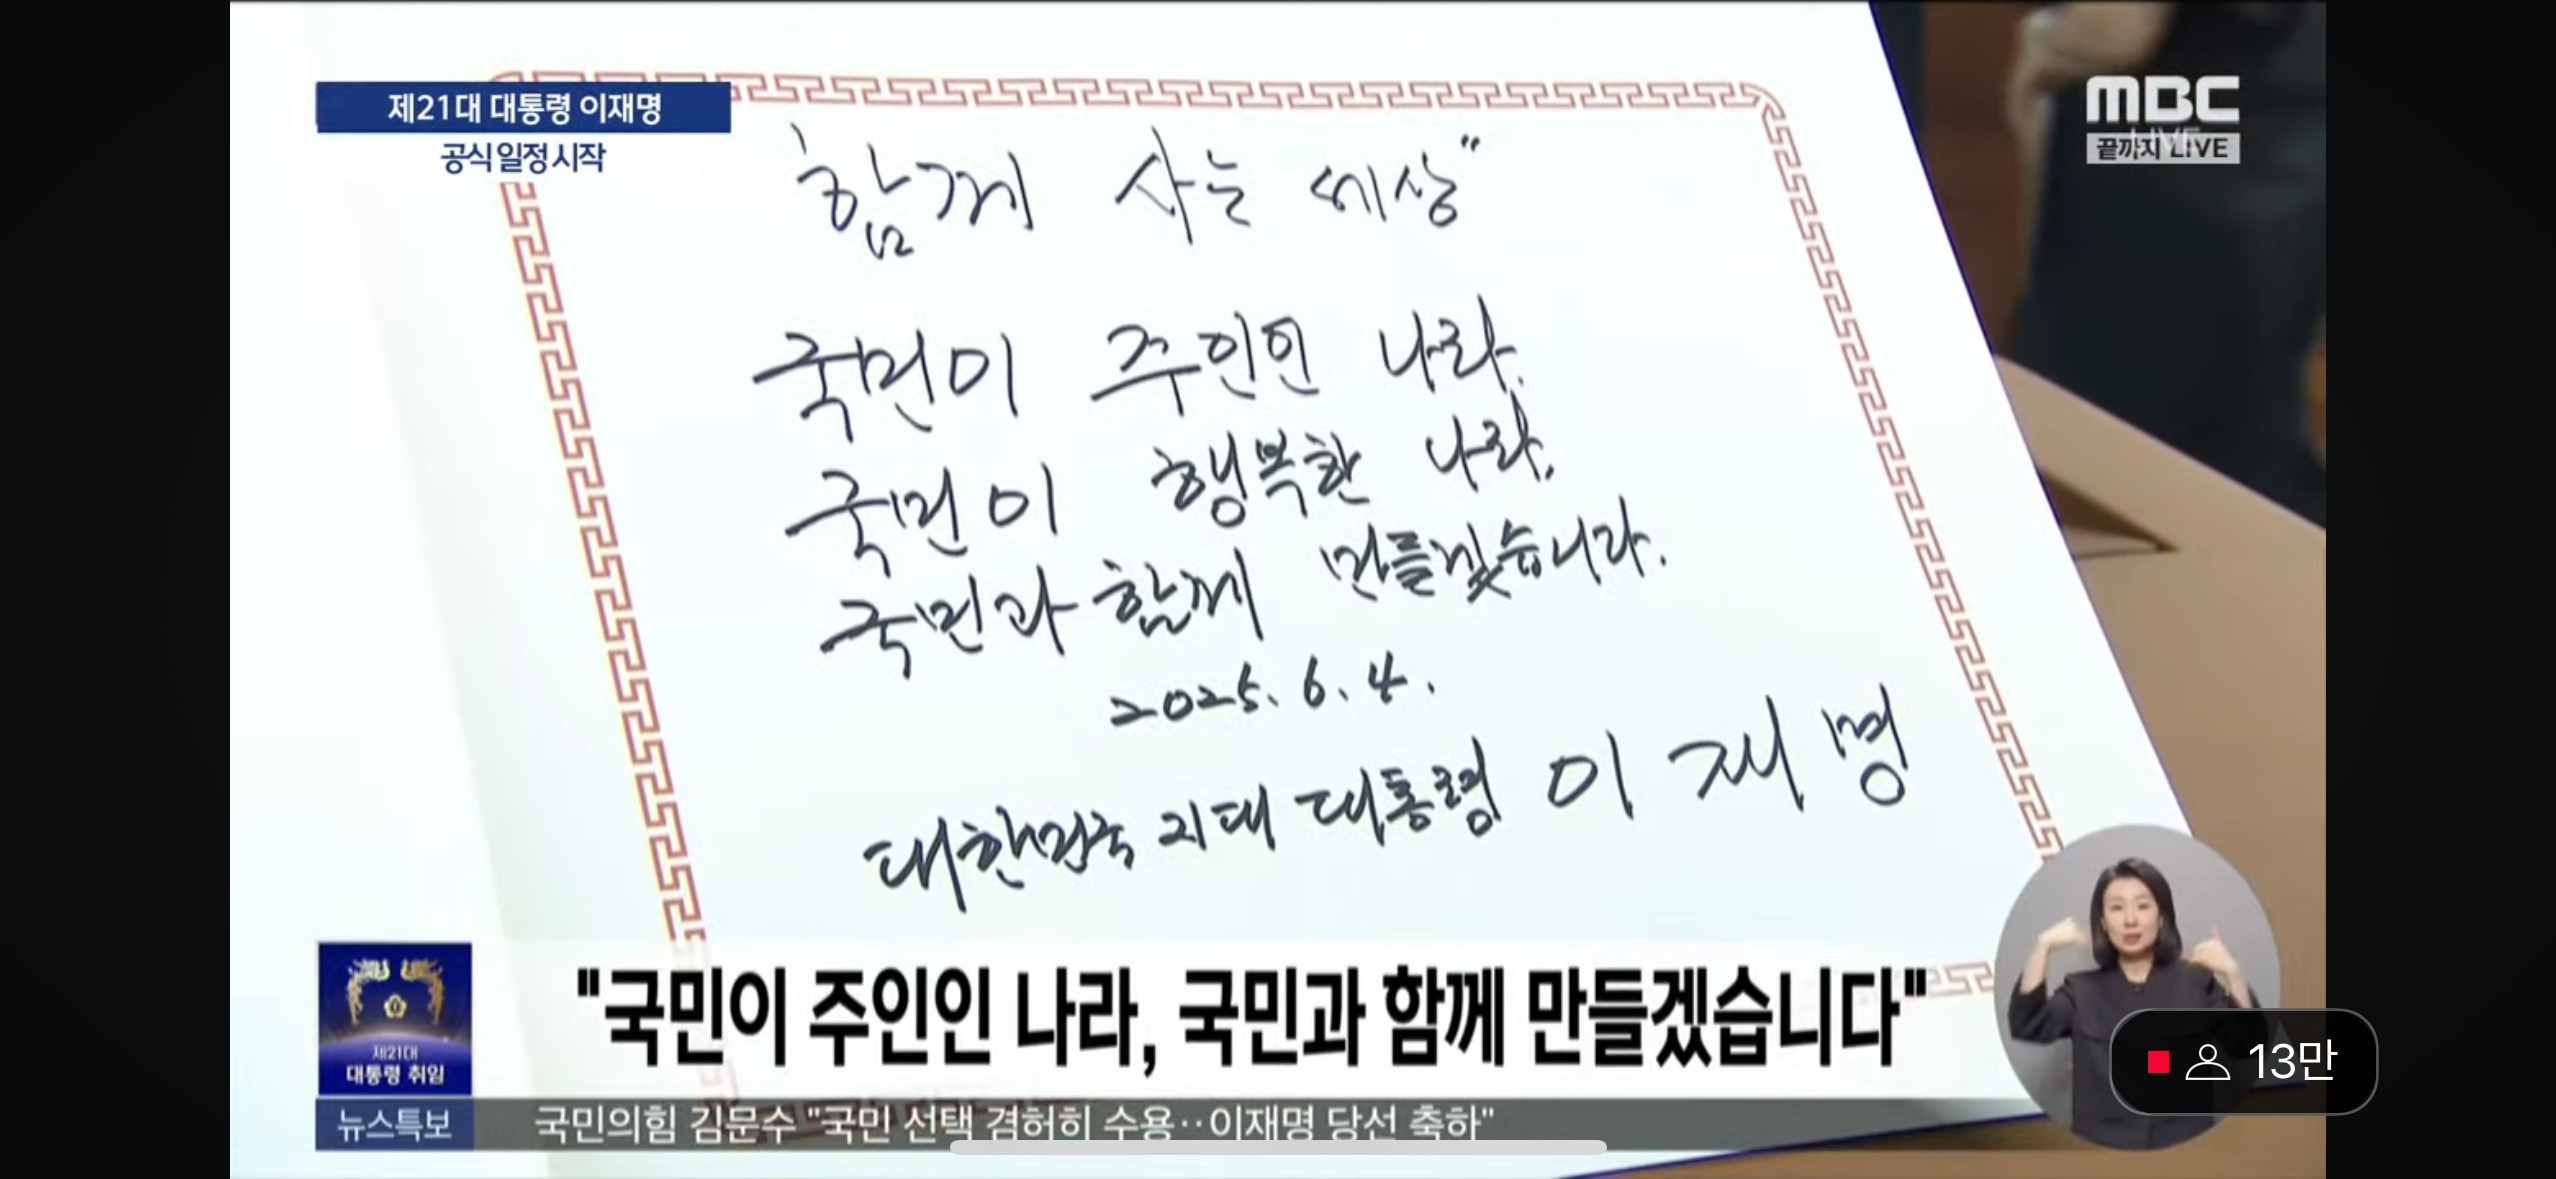 제21대 대통령 이재명
공식 일정 시작
MBC
끝까지 LIVE
함께 사는 세상"
국민이 주인인 나라,
국민이 행복한 나라,
국민과 함께 만들겠습니다.
2025. 6. 4.
대한민국 21대 대통령 이재명
"국민이 주인인 나라, 국민과 함께 만들겠습니다"
제21대
대통령 취임
13만
뉴스특보
국민의힘 김문수 "국민 선택 겸허히 수용··이재명 당선 축하"